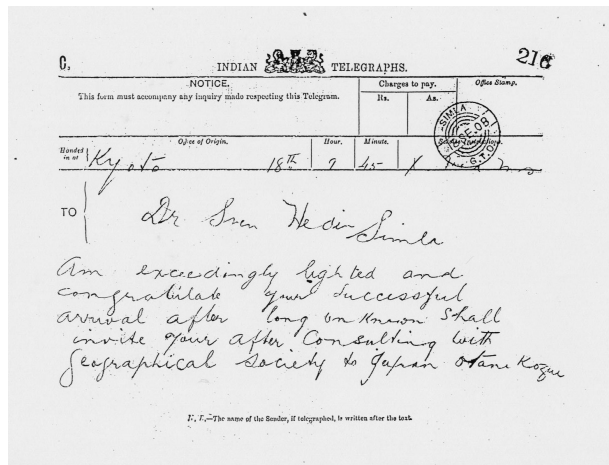 216
C.
INDIAN TELEGRAPHS.
NOTICE.
This form must accompany any inquiry made respecting this Telegram.
Charges to pay.
Rs. As.
Office Stamp.
SIMLA
SE.08
G.T.O
Handed in at
Office of Origin.
Hour.
Minute.
Kyoto 18TH 9 45
TO
Dr Sven Hedin Simla
Am exceedingly lighted and
congratulate your successful
arrival after long unknown shall
invite your after consulting with
geographical society to Japan Otani Kozui
N. B.—The name of the Sender, if telegraphed, is written after the text.